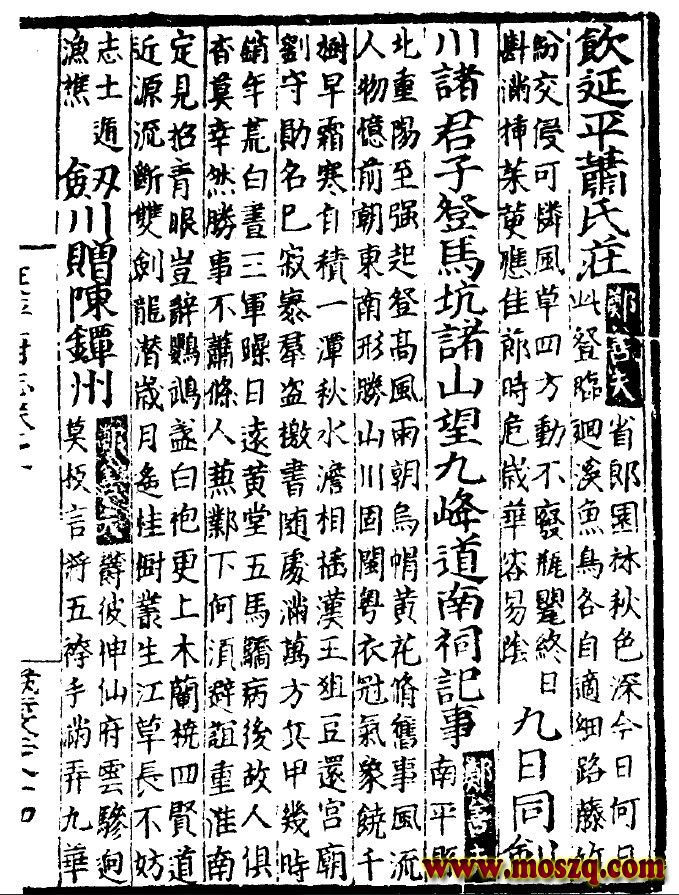 飲延平蕭氏莊
鄭善夫
省郎園林秋色深今日何日
此登臨迴溪魚鳥各自適細路藤竹
紛交侵可憐風草四方動不廢瓶罌終日
斟滿揷茱萸應佳節時危歲華容易陰
九日同劍
川諸君子登馬坑諸山望九峰道南祠記事
鄭善夫
南平縣
北重陽至强起登髙風雨朝烏帽黃花脩舊事風流
人物憶前朝東南形勝山川固閩粤衣冠氣象饒千
樹早霜寒自積一潭秋水澹相搖漢王俎豆還宮廟
劉守勛名已寂寥羣盗檄書随處滿萬方兵甲幾時
銷年荒白晝三軍躁日遠黃堂五馬驕病後故人俱
杳莫幸然勝事不蕭條人蕪鄴下何須辟誼重淮南
定見招青眼豈辭鸚鵡盞白袍更上木蘭橈四賢道
近源流斷雙劍龍潛歲月遙桂樹叢生江草長不妨
志士遁
漁樵
劍川贈陳鐔州
爵彼伸仙府雲驂迥
莫枝言將五袴手滿弄九華
www.moszq.com